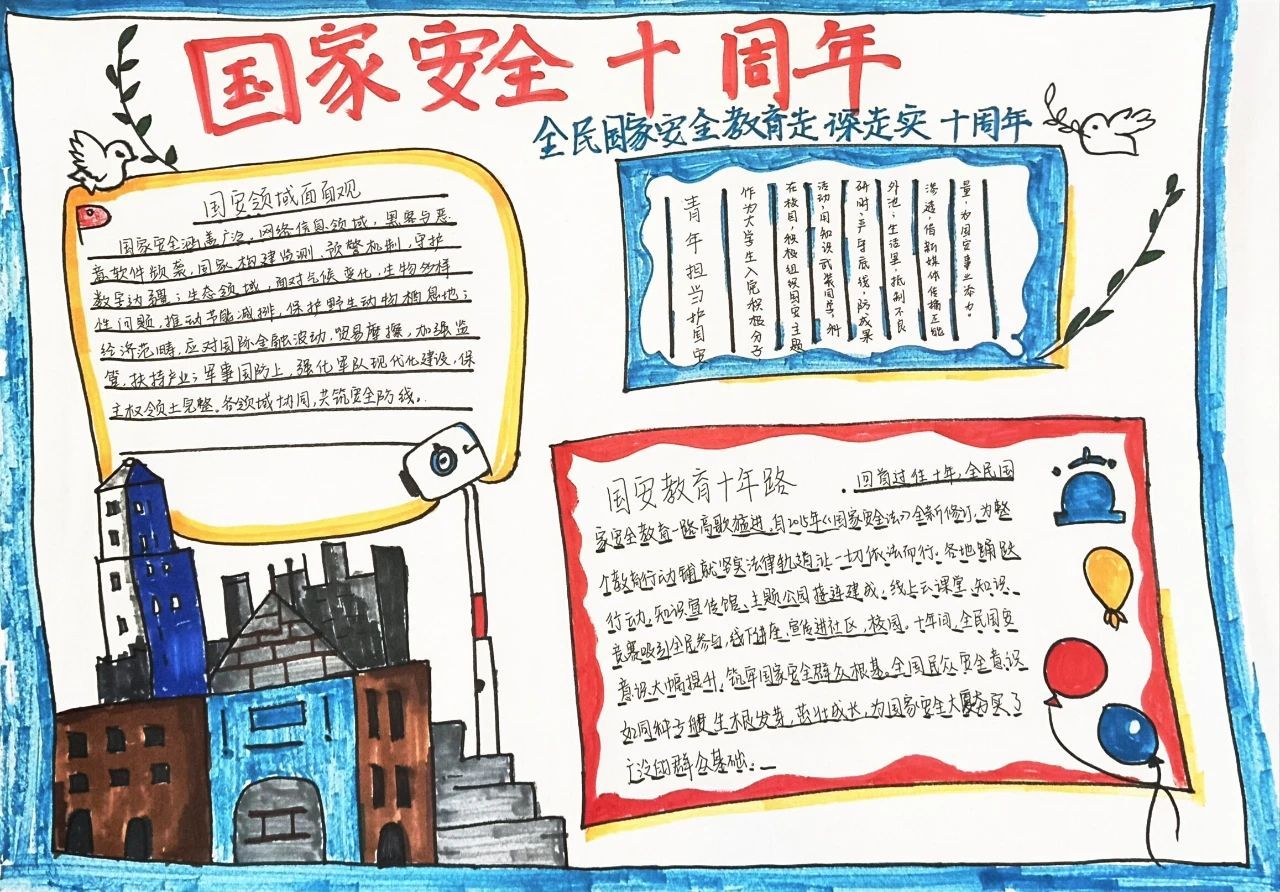 国家安全十周年
全民国家安全教育走深走实十周年
国安领域面面观
国家安全涵盖广泛，网络信息领域，黑客与恶
意软件频袭，国家构建监测、预警机制，守护
数字边疆；生态领域，面对气候变化，生物多样
性问题，推动节能减排，保护野生动物栖息地；
经济范畴，应对国际金融波动，贸易摩擦，加强监
管，扶持产业；军事国防上，强化军队现代化建设，保
主权领土完整。各领域协同，共筑安全防线。
青年担当护国安
作为大学生入党积极分子
在校园，积极组织国安主题
活动，用知识武装同学，科
研时，严守底线，防成果
外泄；生活里，抵制不良
渗透，借新媒体传播正能
量，为国安事业添力。
国安教育十年路
回首过往十年，全民国
家安全教育一路高歌猛进，自2015年《国家安全法》全新修订，为整
个教育行动铺就坚实法律轨道让一切依法而行。各地踊跃
行动，知识宣传馆、主题公园接连建成，线上云课堂、知识
竞赛吸引全民参与，线下讲座，宣传进社区，校园，十年间，全民国安
意识大幅提升，筑牢国家安全群众根基，全国民众安全意识
如同种子般生根发芽，茁壮成长，为国家安全大厦夯实了
广泛的群众基础。